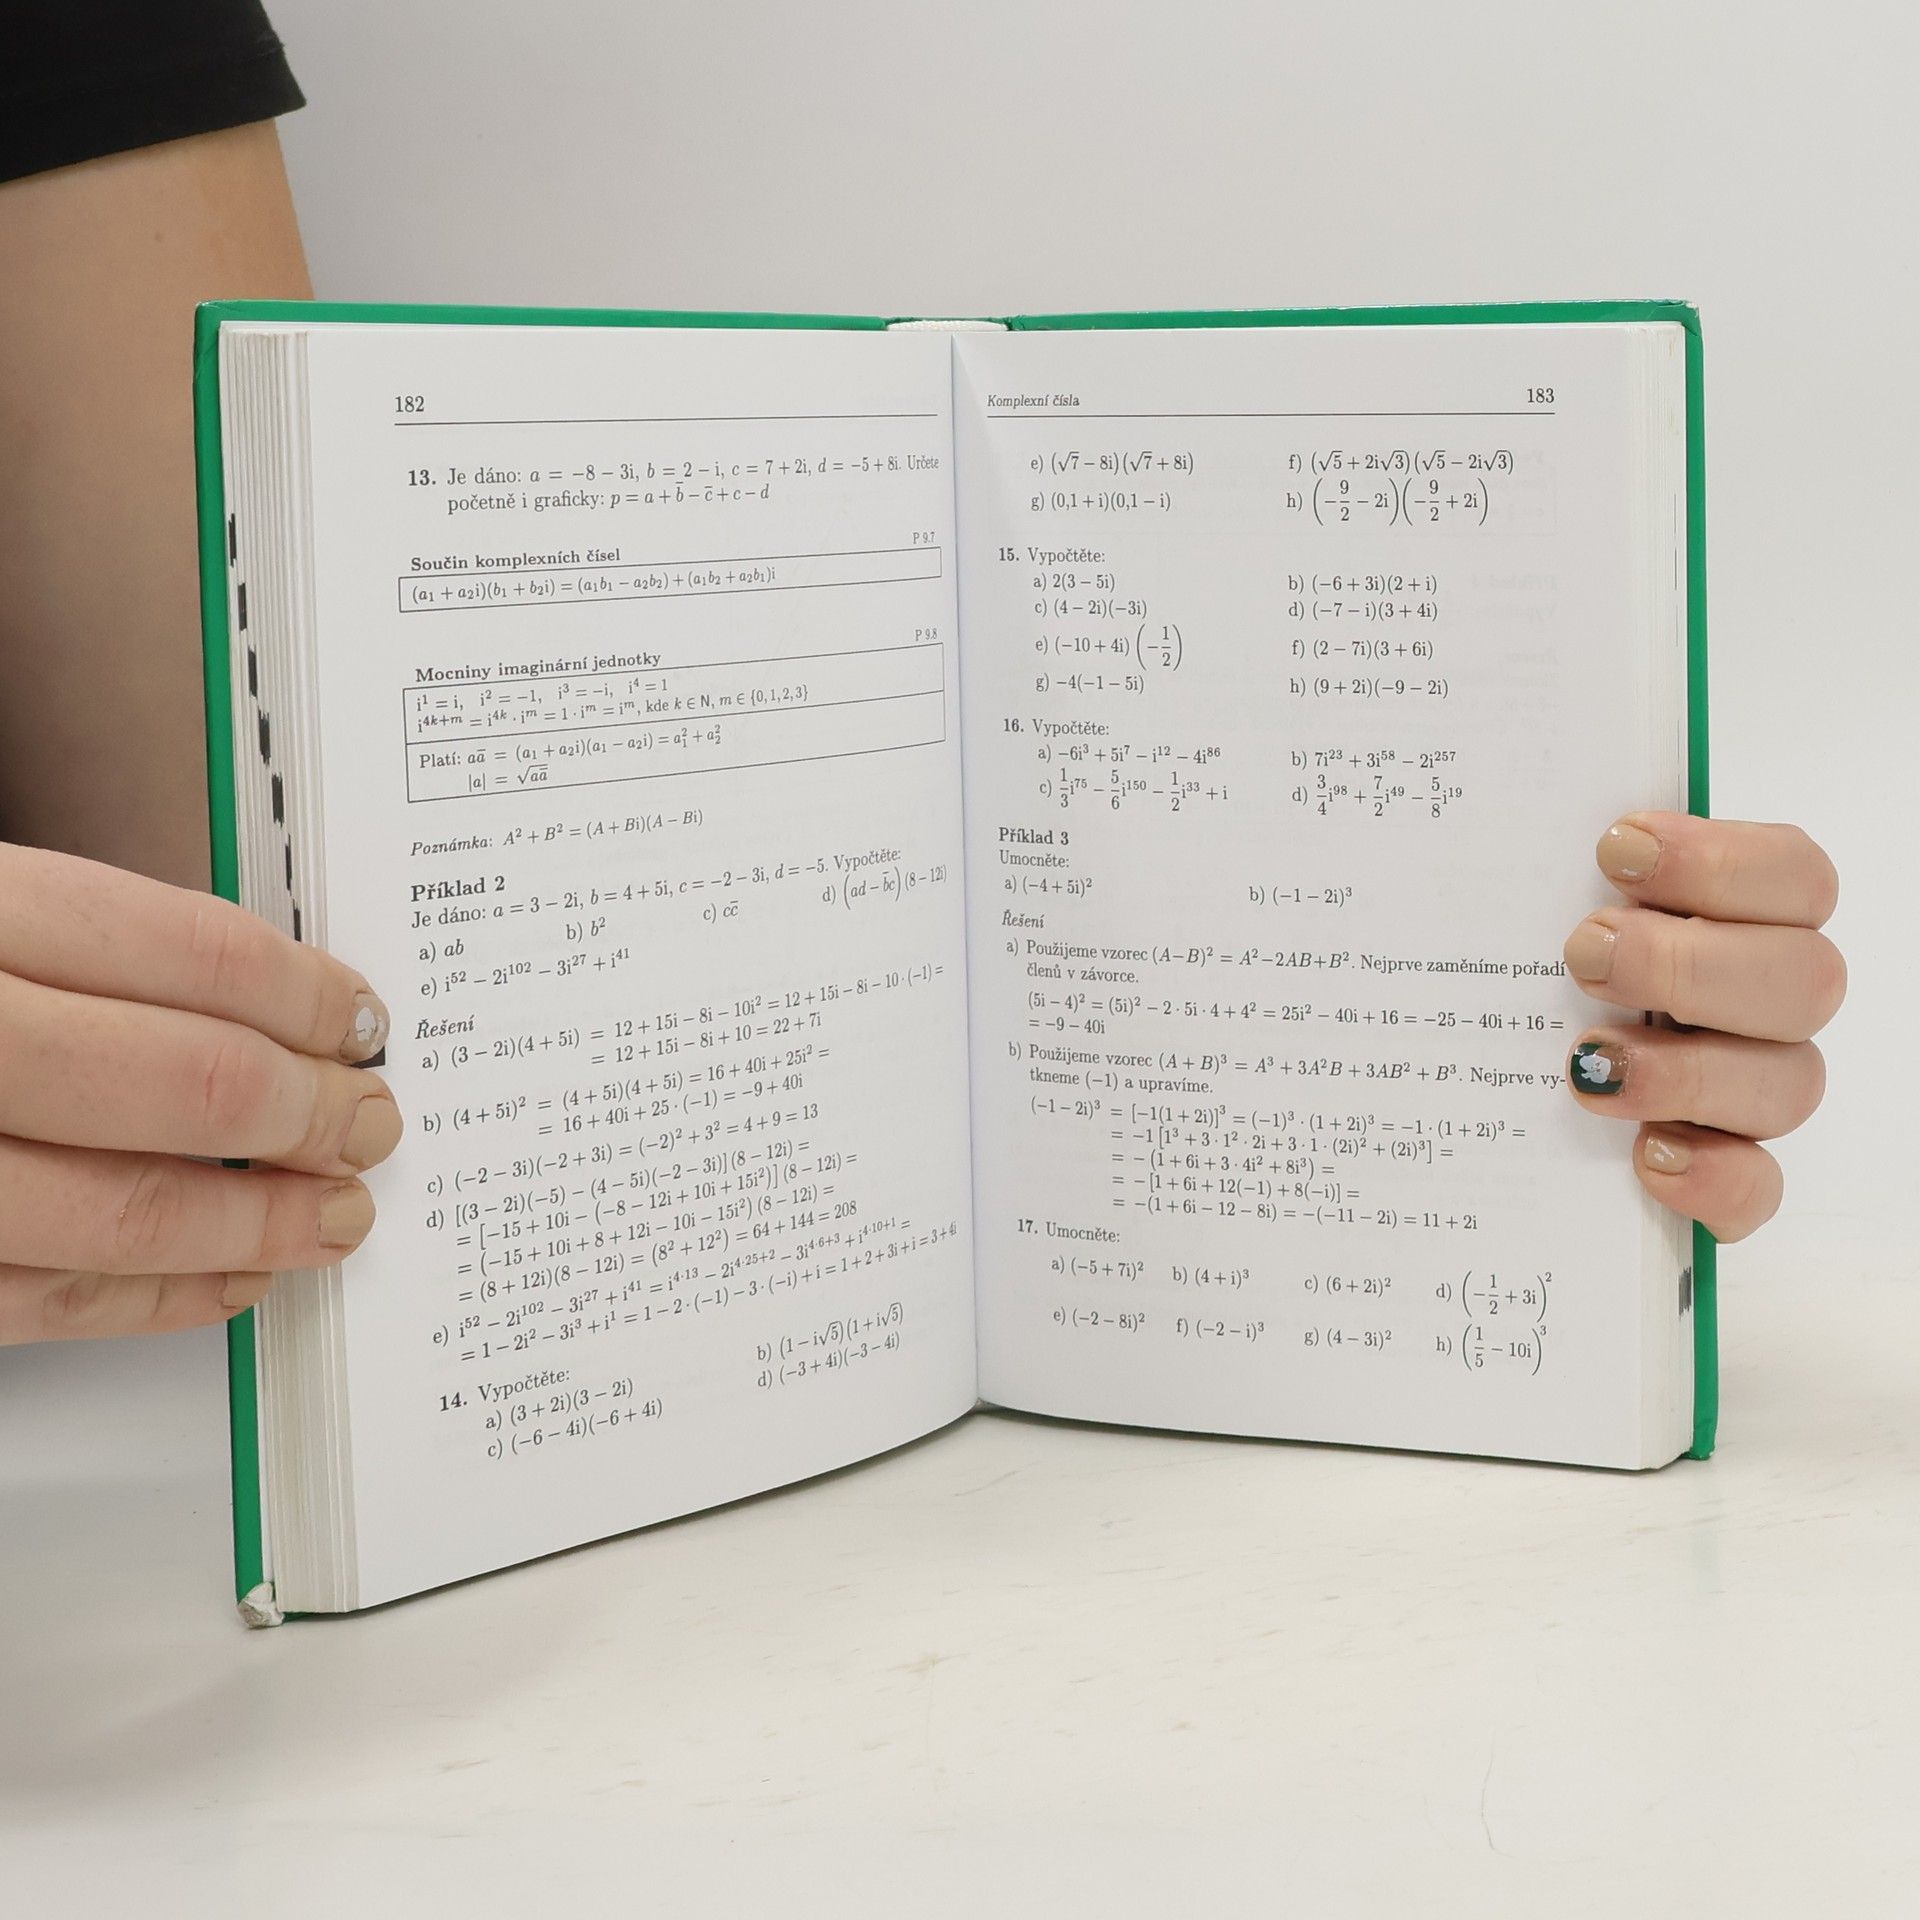 182
13. Je dáno: a = −8 − 3i, b = 2 − i, c = 7 + 2i, d = −5 + 8i. Určete
početně i graficky: p = a + b̄ − c̄ + c − d
P 9.7
Součin komplexních čísel
(a₁ + a₂i)(b₁ + b₂i) = (a₁b₁ − a₂b₂) + (a₁b₂ + a₂b₁)i
P 9.8
Mocniny imaginární jednotky
i¹ = i, i² = −1, i³ = −i, i⁴ = 1
i⁴ᵏ⁺ᵐ = i⁴ᵏ · iᵐ = 1 · iᵐ = iᵐ, kde k ∈ N, m ∈ {0, 1, 2, 3}
Platí: aā = (a₁ + a₂i)(a₁ − a₂i) = a₁² + a₂²
|a| = √aā
Poznámka: A² + B² = (A + Bi)(A − Bi)
Příklad 2
Je dáno: a = 3 − 2i, b = 4 + 5i, c = −2 − 3i, d = −5. Vypočtěte:
a) ab b) b² c) cc̄ d) (ad − b̄c)(8 − 12i)
e) i⁵² − 2i¹⁰² − 3i²⁷ + i⁴¹
Řešení
a) (3 − 2i)(4 + 5i) = 12 + 15i − 8i − 10i² = 12 + 15i − 8i − 10 · (−1) =
= 12 + 15i − 8i + 10 = 22 + 7i
b) (4 + 5i)² = (4 + 5i)(4 + 5i) = 16 + 40i + 25i² =
= 16 + 40i + 25 · (−1) = −9 + 40i
c) (−2 − 3i)(−2 + 3i) = (−2)² + 3² = 4 + 9 = 13
d) [(3 − 2i)(−5) − (4 − 5i)(−2 − 3i)](8 − 12i) =
= [−15 + 10i − (−8 − 12i + 10i + 15i²)](8 − 12i) =
= (−15 + 10i + 8 + 12i − 10i − 15i²)(8 − 12i) =
= (8 + 12i)(8 − 12i) = (8² + 12²) = 64 + 144 = 208
e) i⁵² − 2i¹⁰² − 3i²⁷ + i⁴¹ = i⁴·¹³ − 2i⁴·²⁵⁺² − 3i⁴·⁶⁺³ + i⁴·¹⁰⁺¹ =
= 1 − 2i² − 3i³ + i¹ = 1 − 2 · (−1) − 3 · (−i) + i = 1 + 2 + 3i + i = 3 + 4i
14. Vypočtěte:
a) (3 + 2i)(3 − 2i) b) (1 − i√5)(1 + i√5)
c) (−6 − 4i)(−6 + 4i) d) (−3 + 4i)(−3 − 4i)
Komplexní čísla 183
e) (√7 − 8i)(√7 + 8i) f) (√5 + 2i√3)(√5 − 2i√3)
g) (0,1 + i)(0,1 − i) h) (−9/2 − 2i)(−9/2 + 2i)
15. Vypočtěte:
a) 2(3 − 5i) b) (−6 + 3i)(2 + i)
c) (4 − 2i)(−3i) d) (−7 − i)(3 + 4i)
e) (−10 + 4i)(−1/2) f) (2 − 7i)(3 + 6i)
g) −4(−1 − 5i) h) (9 + 2i)(−9 − 2i)
16. Vypočtěte:
a) −6i³ + 5i⁷ − i¹² − 4i⁸⁶ b) 7i²³ + 3i⁵⁸ − 2i²⁵⁷
c) 1/3 i⁷⁵ − 5/6 i¹⁵⁰ − 1/2 i³³ + i d) 3/4 i⁹⁸ + 7/2 i⁴⁹ − 5/8 i¹⁹
Příklad 3
Umocněte:
a) (−4 + 5i)² b) (−1 − 2i)³
Řešení
a) Použijeme vzorec (A−B)² = A²−2AB+B². Nejprve zaměníme pořadí
členů v závorce.
(5i − 4)² = (5i)² − 2 · 5i · 4 + 4² = 25i² − 40i + 16 = −25 − 40i + 16 =
= −9 − 40i
b) Použijeme vzorec (A + B)³ = A³ + 3A²B + 3AB² + B³. Nejprve vy-
tkneme (−1) a upravíme.
(−1 − 2i)³ = [−1(1 + 2i)]³ = (−1)³ · (1 + 2i)³ = −1 · (1 + 2i)³ =
= −1 [1³ + 3 · 1² · 2i + 3 · 1 · (2i)² + (2i)³] =
= − (1 + 6i + 3 · 4i² + 8i³) =
= −[1 + 6i + 12(−1) + 8(−i)] =
= −(1 + 6i − 12 − 8i) = −(−11 − 2i) = 11 + 2i
17. Umocněte:
a) (−5 + 7i)² b) (4 + i)³ c) (6 + 2i)² d) (−1/2 + 3i)²
e) (−2 − 8i)² f) (−2 − i)³ g) (4 − 3i)² h) (1/5 − 10i)³